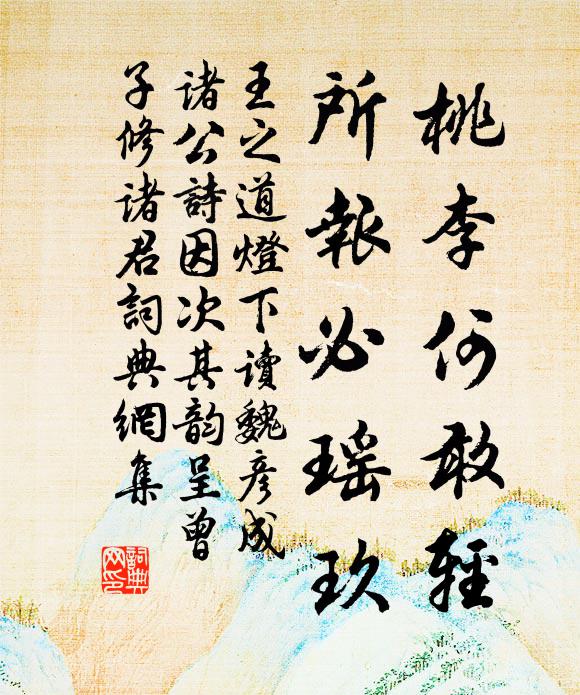 桃李何敢輕
所報必瑶玖
王之道燈下讀魏彦成
諸公詩因次其韵呈曾
子修諸君詞典網集
詞典
网印